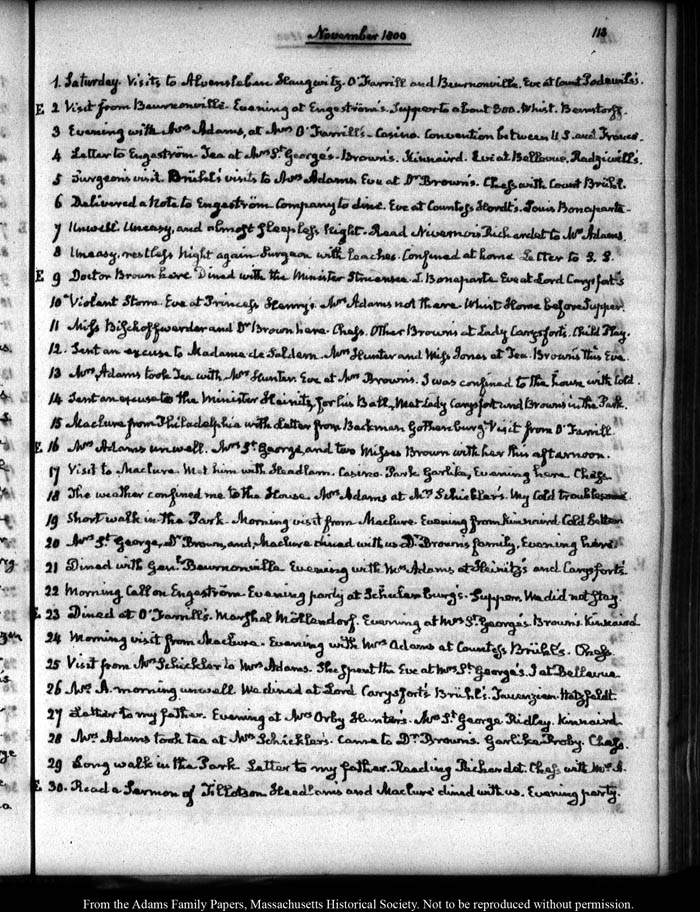 November 1800
113
1. Saturday. Visits to Alvensleben Haugwitz. O'Farrill and Beurnonville. Eve at Count Podewils's.
E 2 Visit from Beurnonville. Evening at Engeström's. Supper to about 300. Whist. Bernstorff.
3 Evening with Mrs Adams, at Mrs O'Farrill's. Casino. Convention between U S. and France.
4 Letter to Engeström Tea at Mrs St George's. Brown's. Kinnaird. Eve at Bellevue. Radziwill's.
5 Surgeon's visit. Brühl's visits to Mrs Adams Eve at Dr Brown's. Chess with Count Brühl.
6 Delivered a Note to Engeström Company to dine. Eve at Countess Hordt's. Louis Bonaparte
7 Unwell. Uneasy, and almost sleepless Night. Read Nivernois Richardet to Mrs Adams.
8 Uneasy, restless Night again Surgeon with leaches. Confined at home Letter to S. S.
E 9 Doctor Brown here Dined with the Minister Struensee L Bonaparte Eve at Lord Carysfort's
10 Violent Storm. Eve at Princess Henry's. Mrs Adams not there. Whist Home before Supper.
11 Miss Bischoffwerder and Dr Brown here. Chess. Other Browns at Lady Carysfort's. Child Play.
12. Sent an excuse to Madame de Saldern. Mrs Hunter and Miss Jones at Tea. Browns this Eve.
13 Mrs Adams took Tea with Mrs Hunter. Eve at Mrs Brown's. I was confined to the house with Cold.
14 Sent an excuse to the Minister Heinitz, for his Ball, Met Lady Carysfort and Browns in the Park.
15 Maclure from Philadelphia with Letter from Backman Gothenburg Visit from O'Farrill
E 16 Mrs Adams unwell. Mrs St George, and two Misses Brown with her this afternoon.
17 Visit to Maclure. Met him with Headlam. Casino. Park Garlike, Evening here Chess
18 The weather confined me to the House. Mrs Adams at Mrs Schickler's. My Cold troublesome.
19 Short walk in the Park. Morning visit from Maclure. Evening from Kinnaird Cold better
20 Mrs St George, Dr Brown, and Maclure dined with us Dr Brown's family, Evening here
21 Dined with Genl Beurnonville. Evening with Mrs Adams at Heinitz's and Carysfort's
22 Morning Call on Engeström Evening party at Schulenburg's. Supper. We did not stay
E 23 Dined at O'Farrill's. Marshal Möllendorf. Evening at Mrs St George's Browns. Kinnaird
24 Morning visit from Maclure. Evening with Mrs Adams at Countess Brühl's. Chess.
25 Visit from Mrs Schickler to Mrs Adams. She spent the Eve at Mrs St George's. I at Bellevue
26 Mrs A. morning, unwell We dined at Lord Carysfort's Brühl's. Tauenzien Hatzfeldt.
27 Letter to my father. Evening at Mrs Orby Hunter's. Mrs St George Ridley. Kinnaird
28 Mrs Adams took tea at Mrs Schickler's. Came to Dr Brown's. Garlike Proby. Chess.
29 Long walk in the Park Letter to my father. Reading Richardet. Chess with Mrs A.
E 30. Read a Sermon of Tillotson Headlam and Maclure dined with us. Evening party.
From the Adams Family Papers, Massachusetts Historical Society. Not to be reproduced without permission.